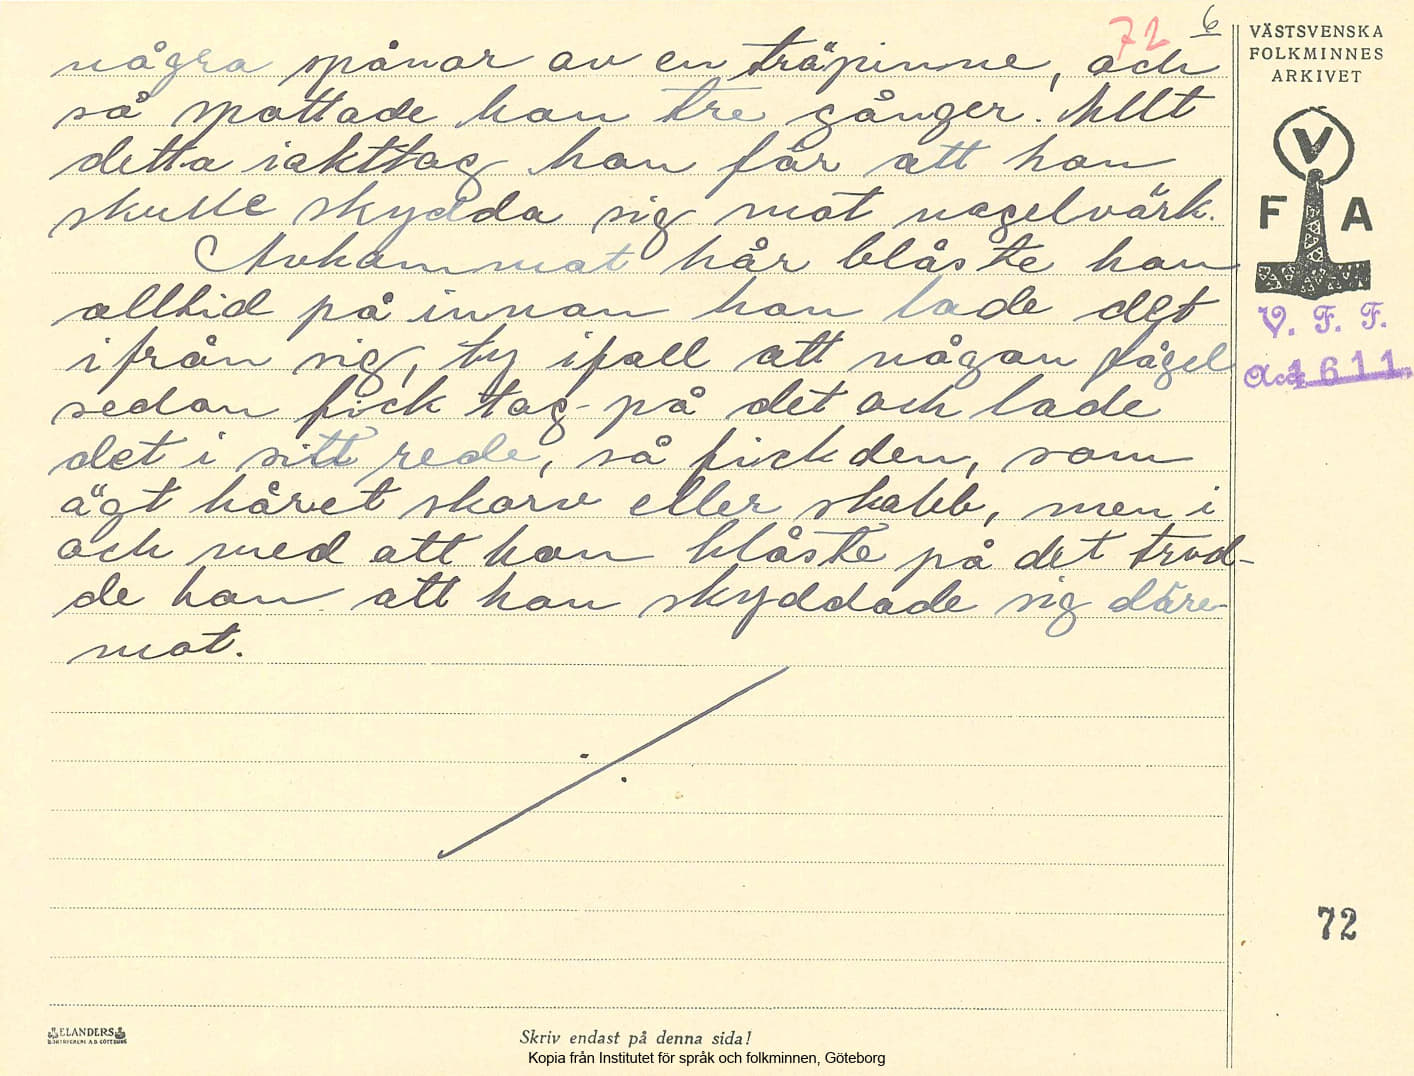 72 6
några spånor av en träpinne, och
så spottade han tre gånger. Allt
detta iakttog han får att han
skulle skydda sig mot nagelvärk.
Avkammat hår blåste han
alltid på innan han lade det
ifrån sig, ty ifall att någon fågel
sedan fick tag på det och lade
det i sitt rede, så fick den, som
ägt håret skorv eller skabb, men i
och med att han blåste på det trod-
de han att han skyddade sig däre-
mot.
VÄSTSVENSKA
FOLKMINNES
ARKIVET
V
F A
V. F. F.
Acc. 1611
72
ELANDERS
BOKTRYCKERI A.B. GÖTEBORG
Skriv endast på denna sida!
Kopia från Institutet för språk och folkminnen, Göteborg